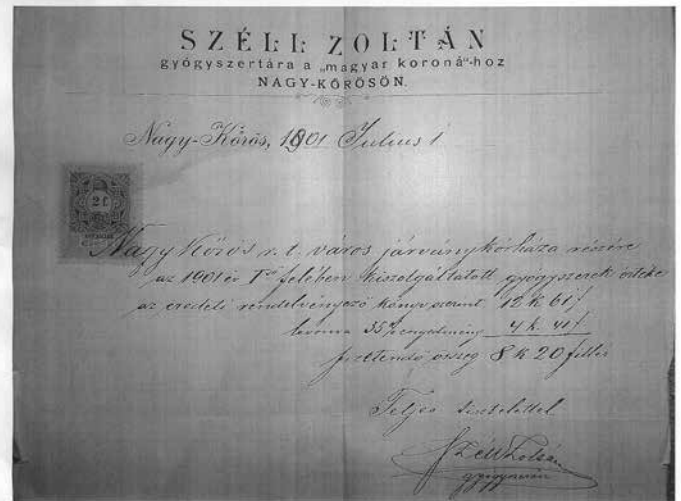 SZÉLL ZOLTÁN
gyógyszertára a „magyar koroná“-hoz
NAGY-KŐRÖSÖN.
Nagy-Kőrös, 1901 Julius 1
2 f
Nagy Kőrös r. t. város járványkórháza részére
az 1901 év I felében kiszolgáltatott gyógyszerek értéke
az eredeti rendelvényező könyv szerint 12 K 61 f
levonva 35% engedmény 4 k. 41 f.
fizetendő összeg 8 K 20 fillér
Teljes tisztelettel
Széll Zoltán
gyógyszerész